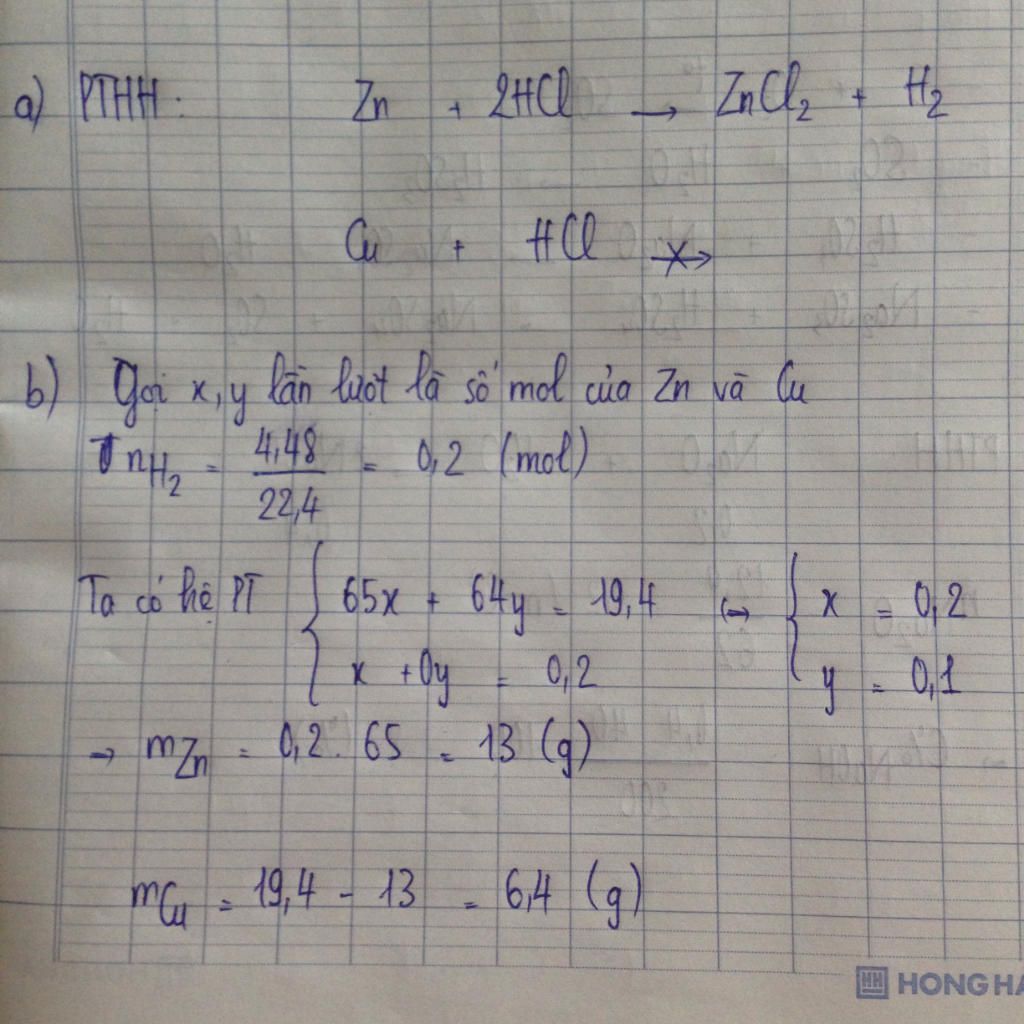 a) PTHH: Zn + 2HCl → ZnCl₂ + H₂
Cu + HCl
b) Gọi x, y lần lượt là số mol của Zn và Cu
nH₂ = 4,48/22,4 = 0,2 (mol)
Ta có hệ PT { 65x + 64y = 19,4 ↔ { x = 0,2
x + 0y = 0,2 y = 0,1
→ mZn = 0,2 . 65 = 13 (g)
mCu = 19,4 - 13 = 6,4 (g)
HONG HA